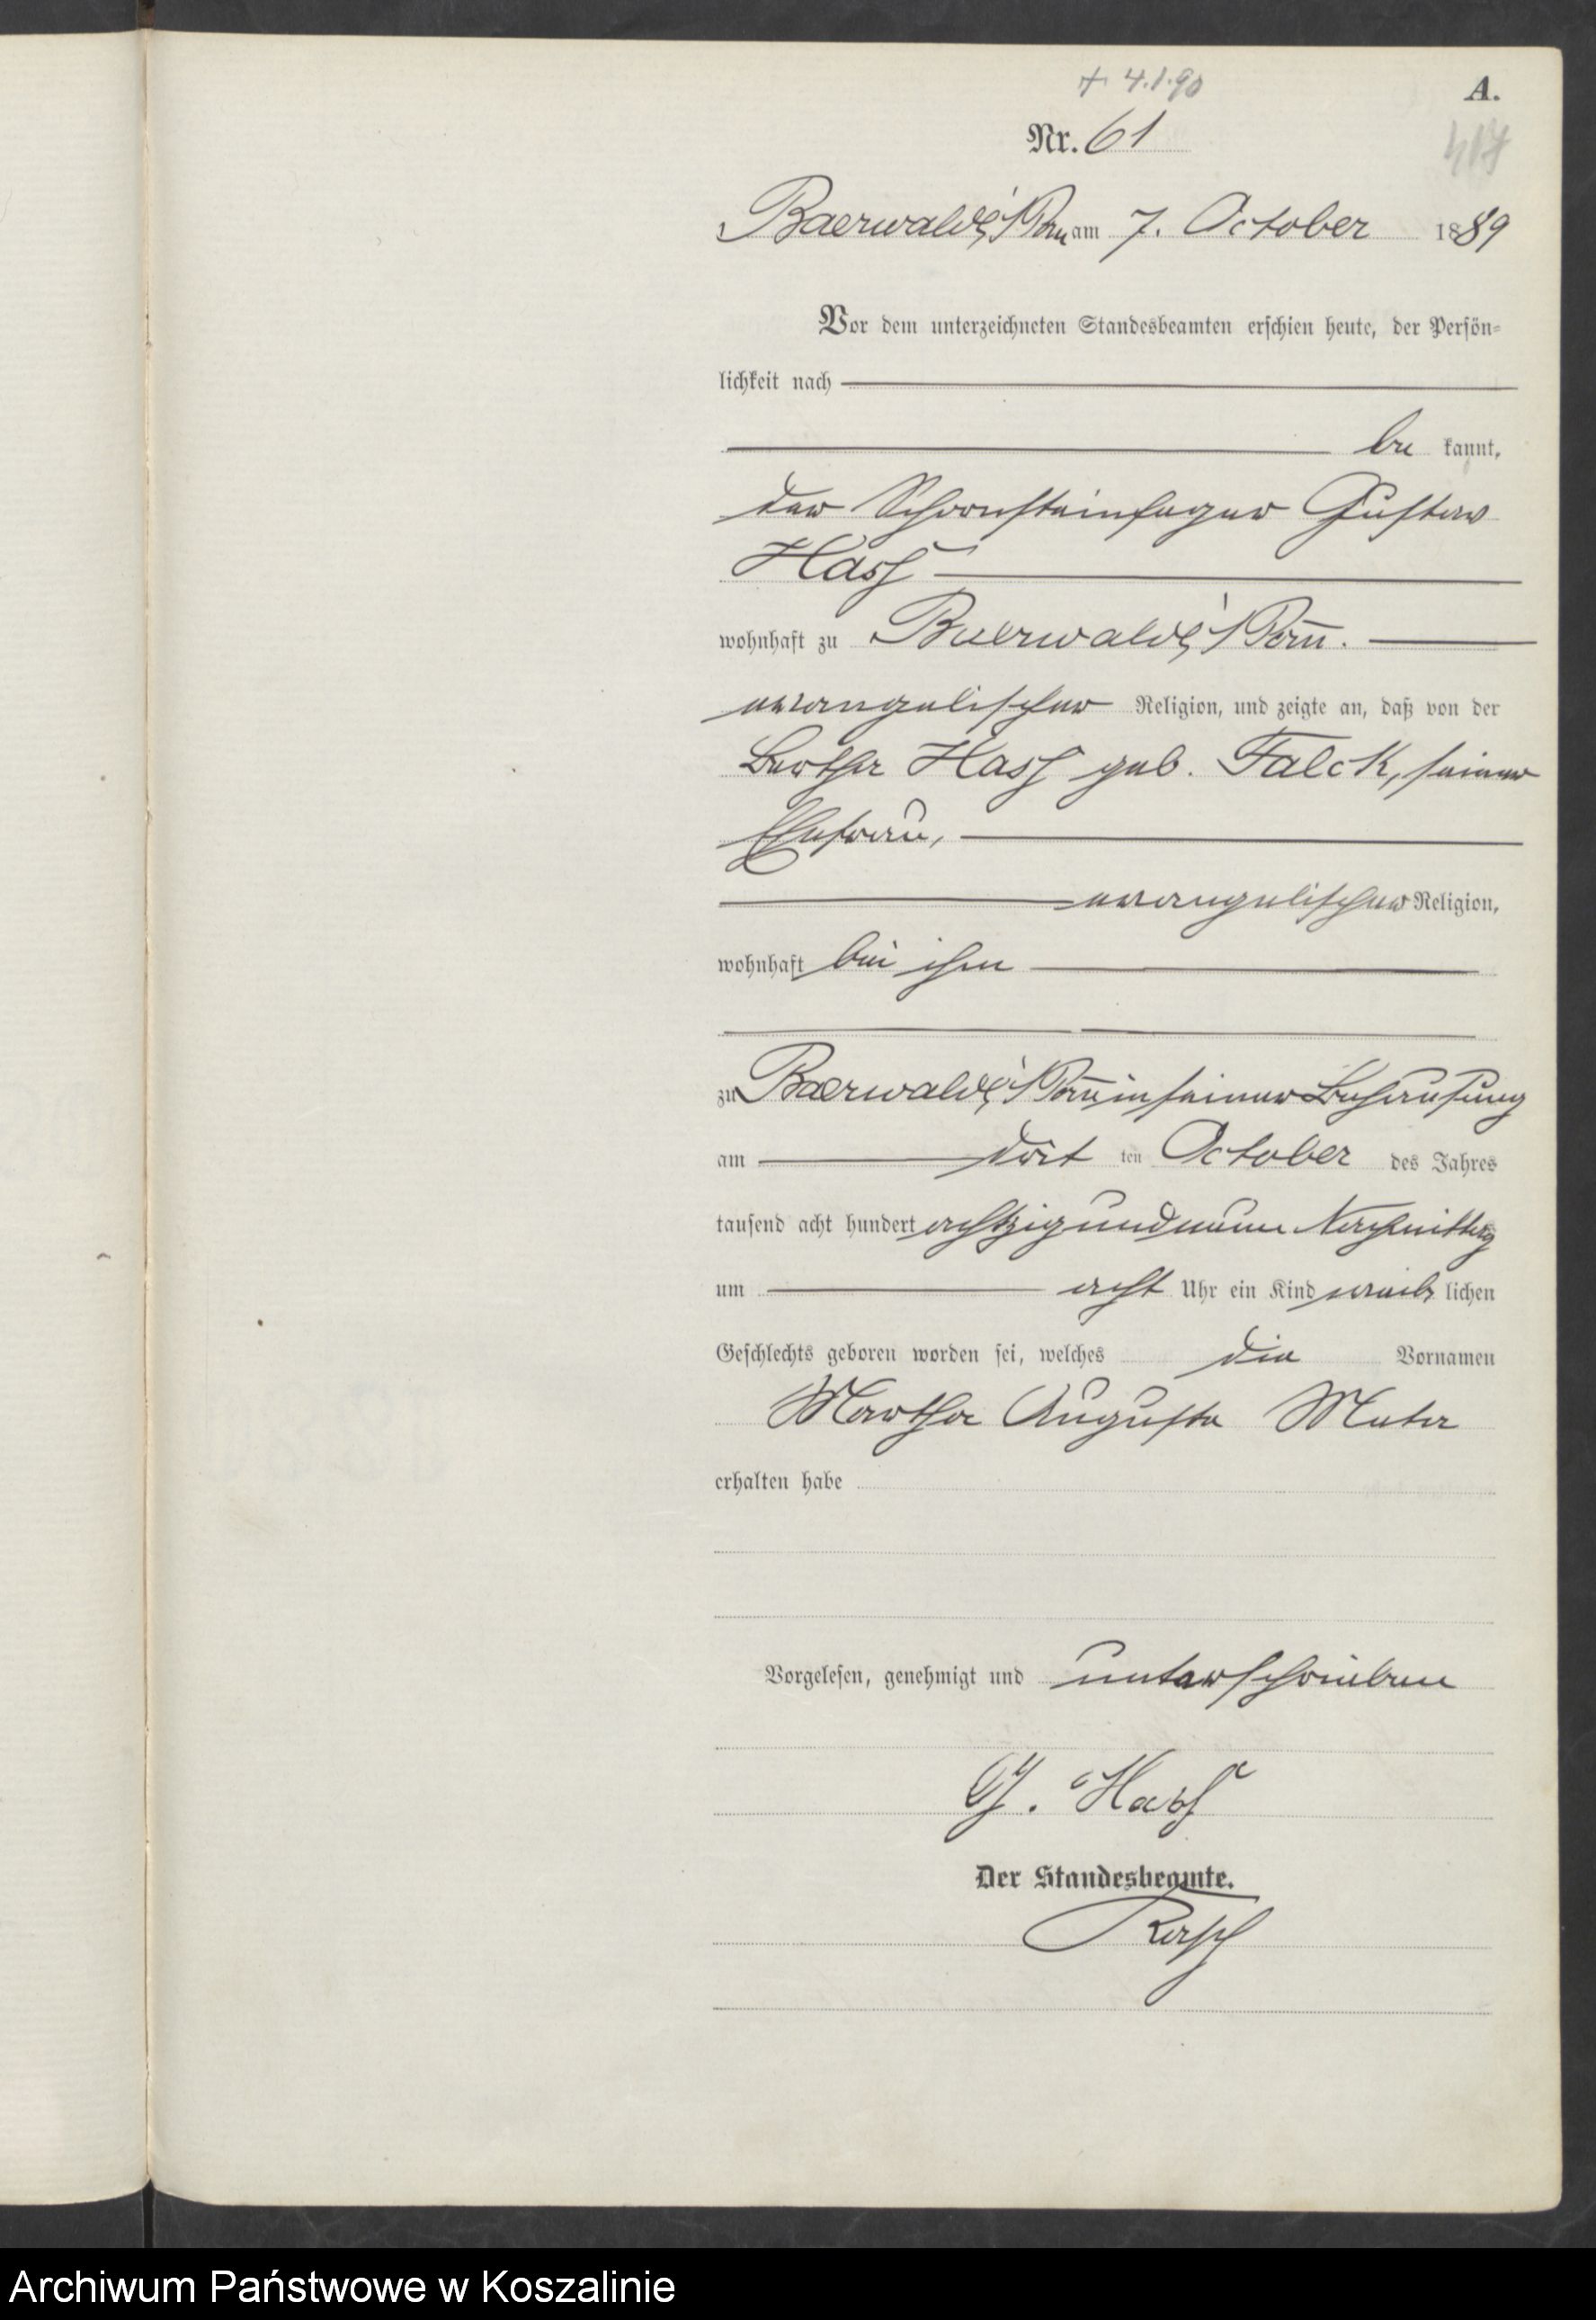 + 4.1.90
A.
Nr. 61
417
Baerwalde i/Pom am 7. October 1889
Vor dem unterzeichneten Standesbeamten erschien heute, der Persön-
lichkeit nach
be kannt,
der Schornsteinfeger Gustav
Hass
wohnhaft zu Baerwalde i/Pom.
evangelischer Religion, und zeigte an, daß von der
Bertha Hass geb. Falck, seiner
Ehefrau,
evangelischer Religion,
wohnhaft bei ihm
zu Baerwalde i/Pom in seiner Behausung
am ten October des Jahres
tausend acht hundert achtzig und neun Nachmittag
um acht Uhr ein Kind weib lichen
Geschlechts geboren worden sei, welches die Vornamen
Martha Auguste Meta
erhalten habe
Vorgelesen, genehmigt und unterschrieben
G. Hass
Der Standesbeamte.
Archiwum Państwowe w Koszalinie